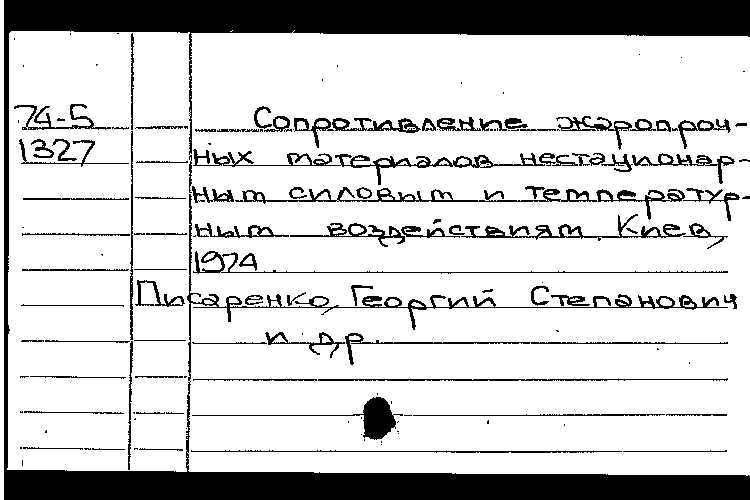 74-5 Сопротивление жаропроч-
1327 ных материалов нестационар-
ным силовым и температур-
ным воздействиям. Киев,
1974.
Писаренко, Георгий Степанович
и др.